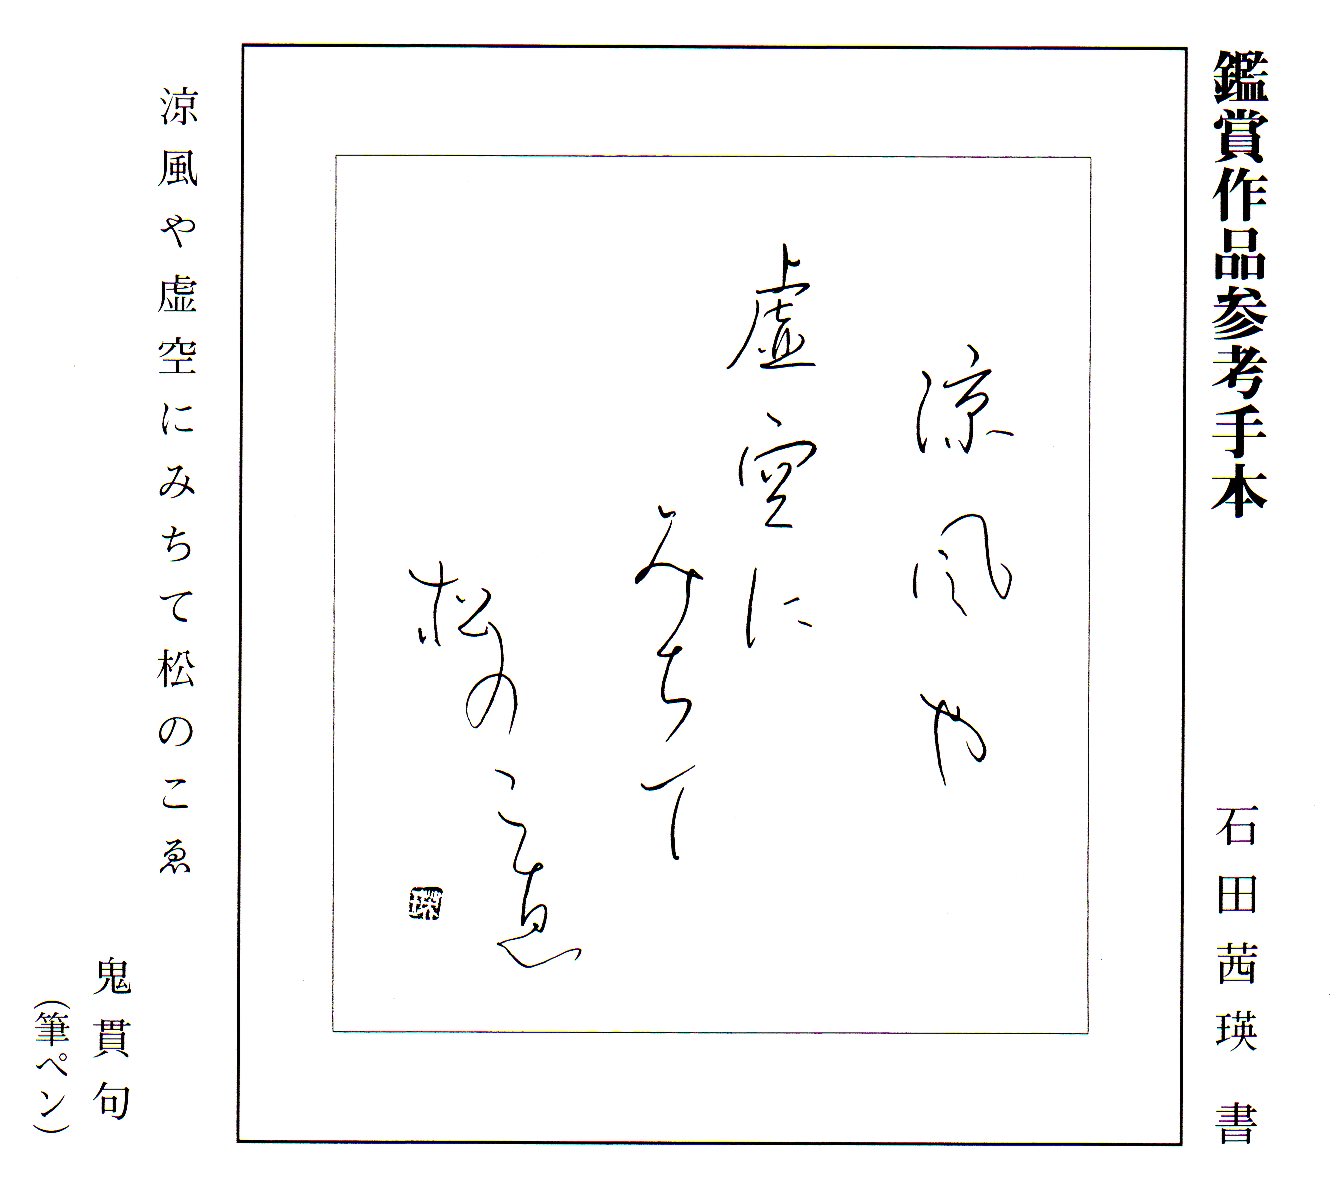 鑑賞作品参考手本
石田茜瑛 書
涼風や
虚空に
みちて
松のこゑ
瑛
涼風や虚空にみちて松のこゑ
鬼貫句
（筆ペン）